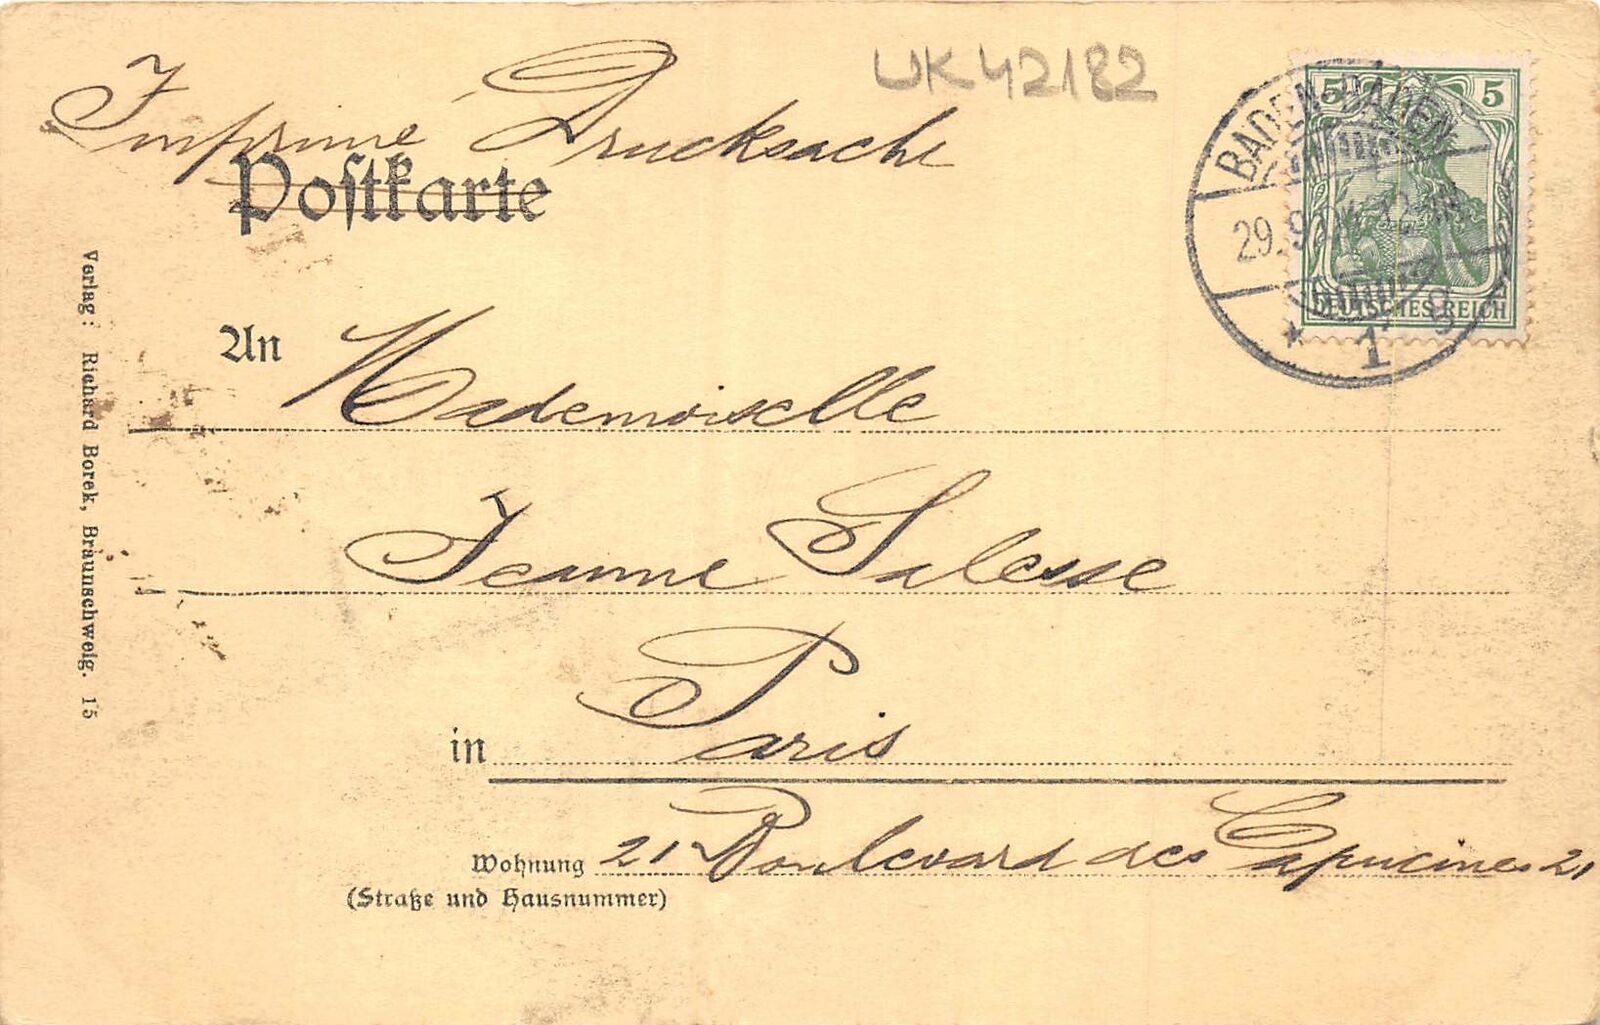 UK42182
Imprimé Drucksache
Postkarte
BADEN-BADEN
29. 9.
* 1 g
5 5
DEUTSCHES REICH
An Mademoiselle
Jeanne Salesse
in Paris
Wohnung 21 Boulevard des Capucines 21
(Straße und Hausnummer)
Verlag: Richard Borek, Braunschweig. 15